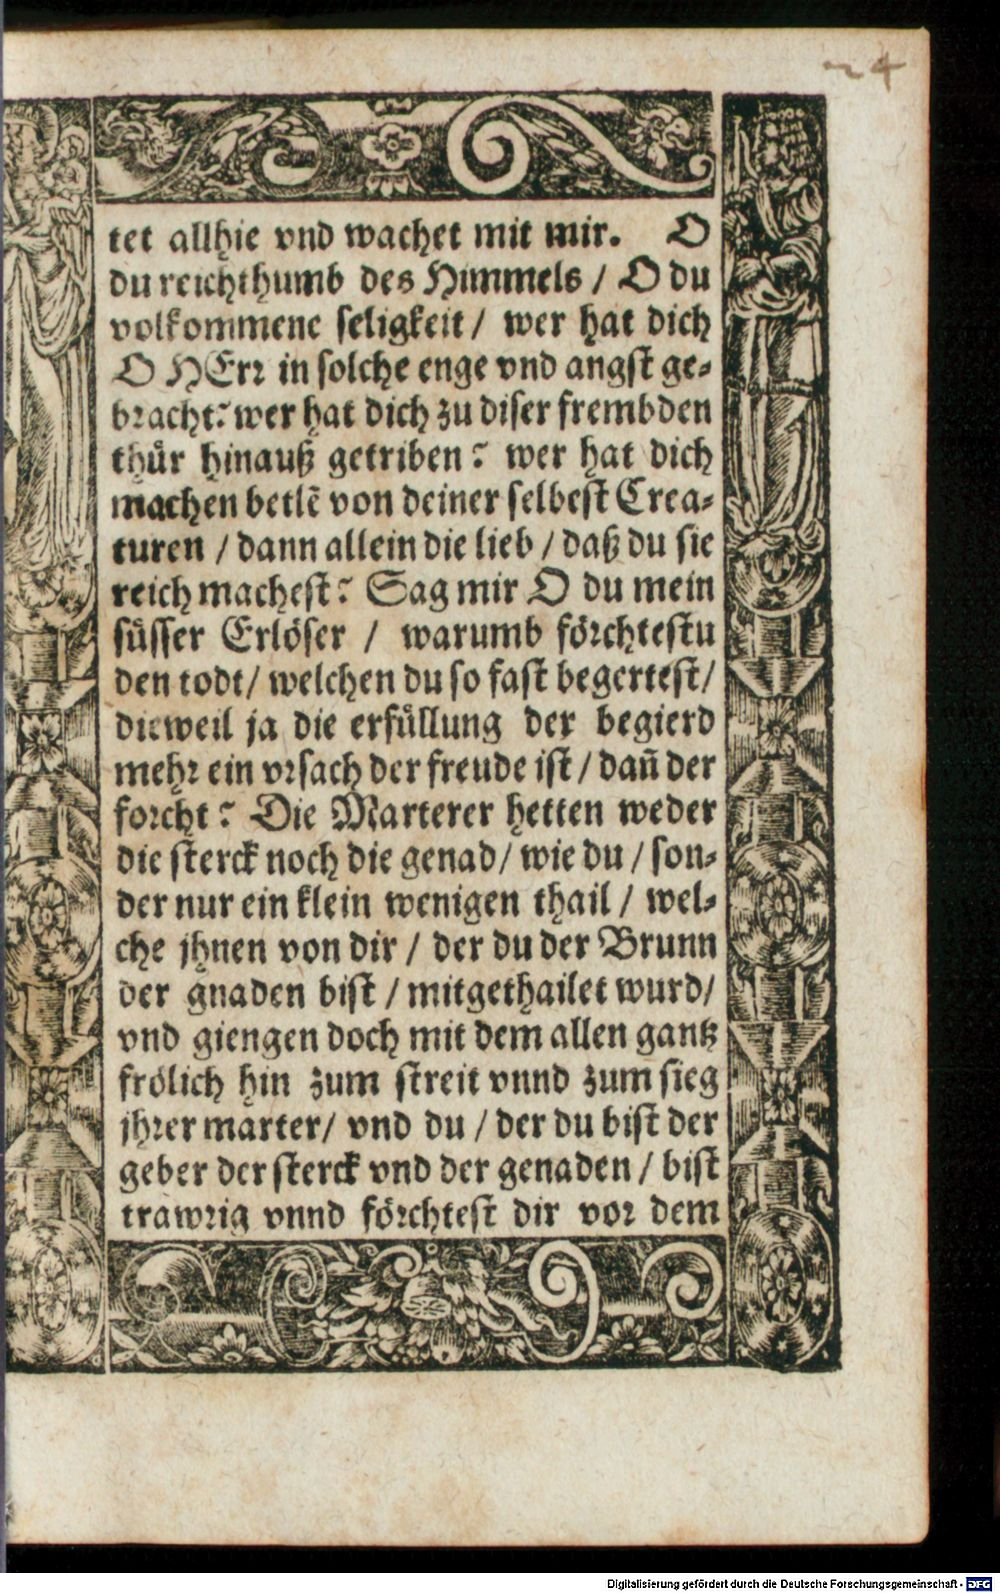 24
tet allhie vnd wachet mit mir. O
du reichthumb des Himmels / O du
volkommene seligkeit / wer hat dich
O HErr in solche enge vnd angst ge-
bracht? wer hat dich zu diser frembden
thür hinauß getriben? wer hat dich
machen betlē von deiner selbest Crea-
turen / dann allein die lieb / daß du sie
reich machest? Sag mir O du mein
süsser Erlöser / warumb förchtestu
den todt / welchen du so fast begertest /
dieweil ja die erfüllung der begierd
mehr ein vrsach der freude ist / dañ der
forcht? Die Marterer hetten weder
die sterck noch die genad / wie du / son-
der nur ein klein wenigen thail / wel-
che jhnen von dir / der du der Brunn
der gnaden bist / mitgethailet wurd /
vnd giengen doch mit dem allen gantz
frölich hin zum streit vnnd zum sieg
jhrer marter / vnd du / der du bist der
geber der sterck vnd der genaden / bist
trawrig vnnd förchtest dir vor dem
Digitalisierung gefördert durch die Deutsche Forschungsgemeinschaft - DFG